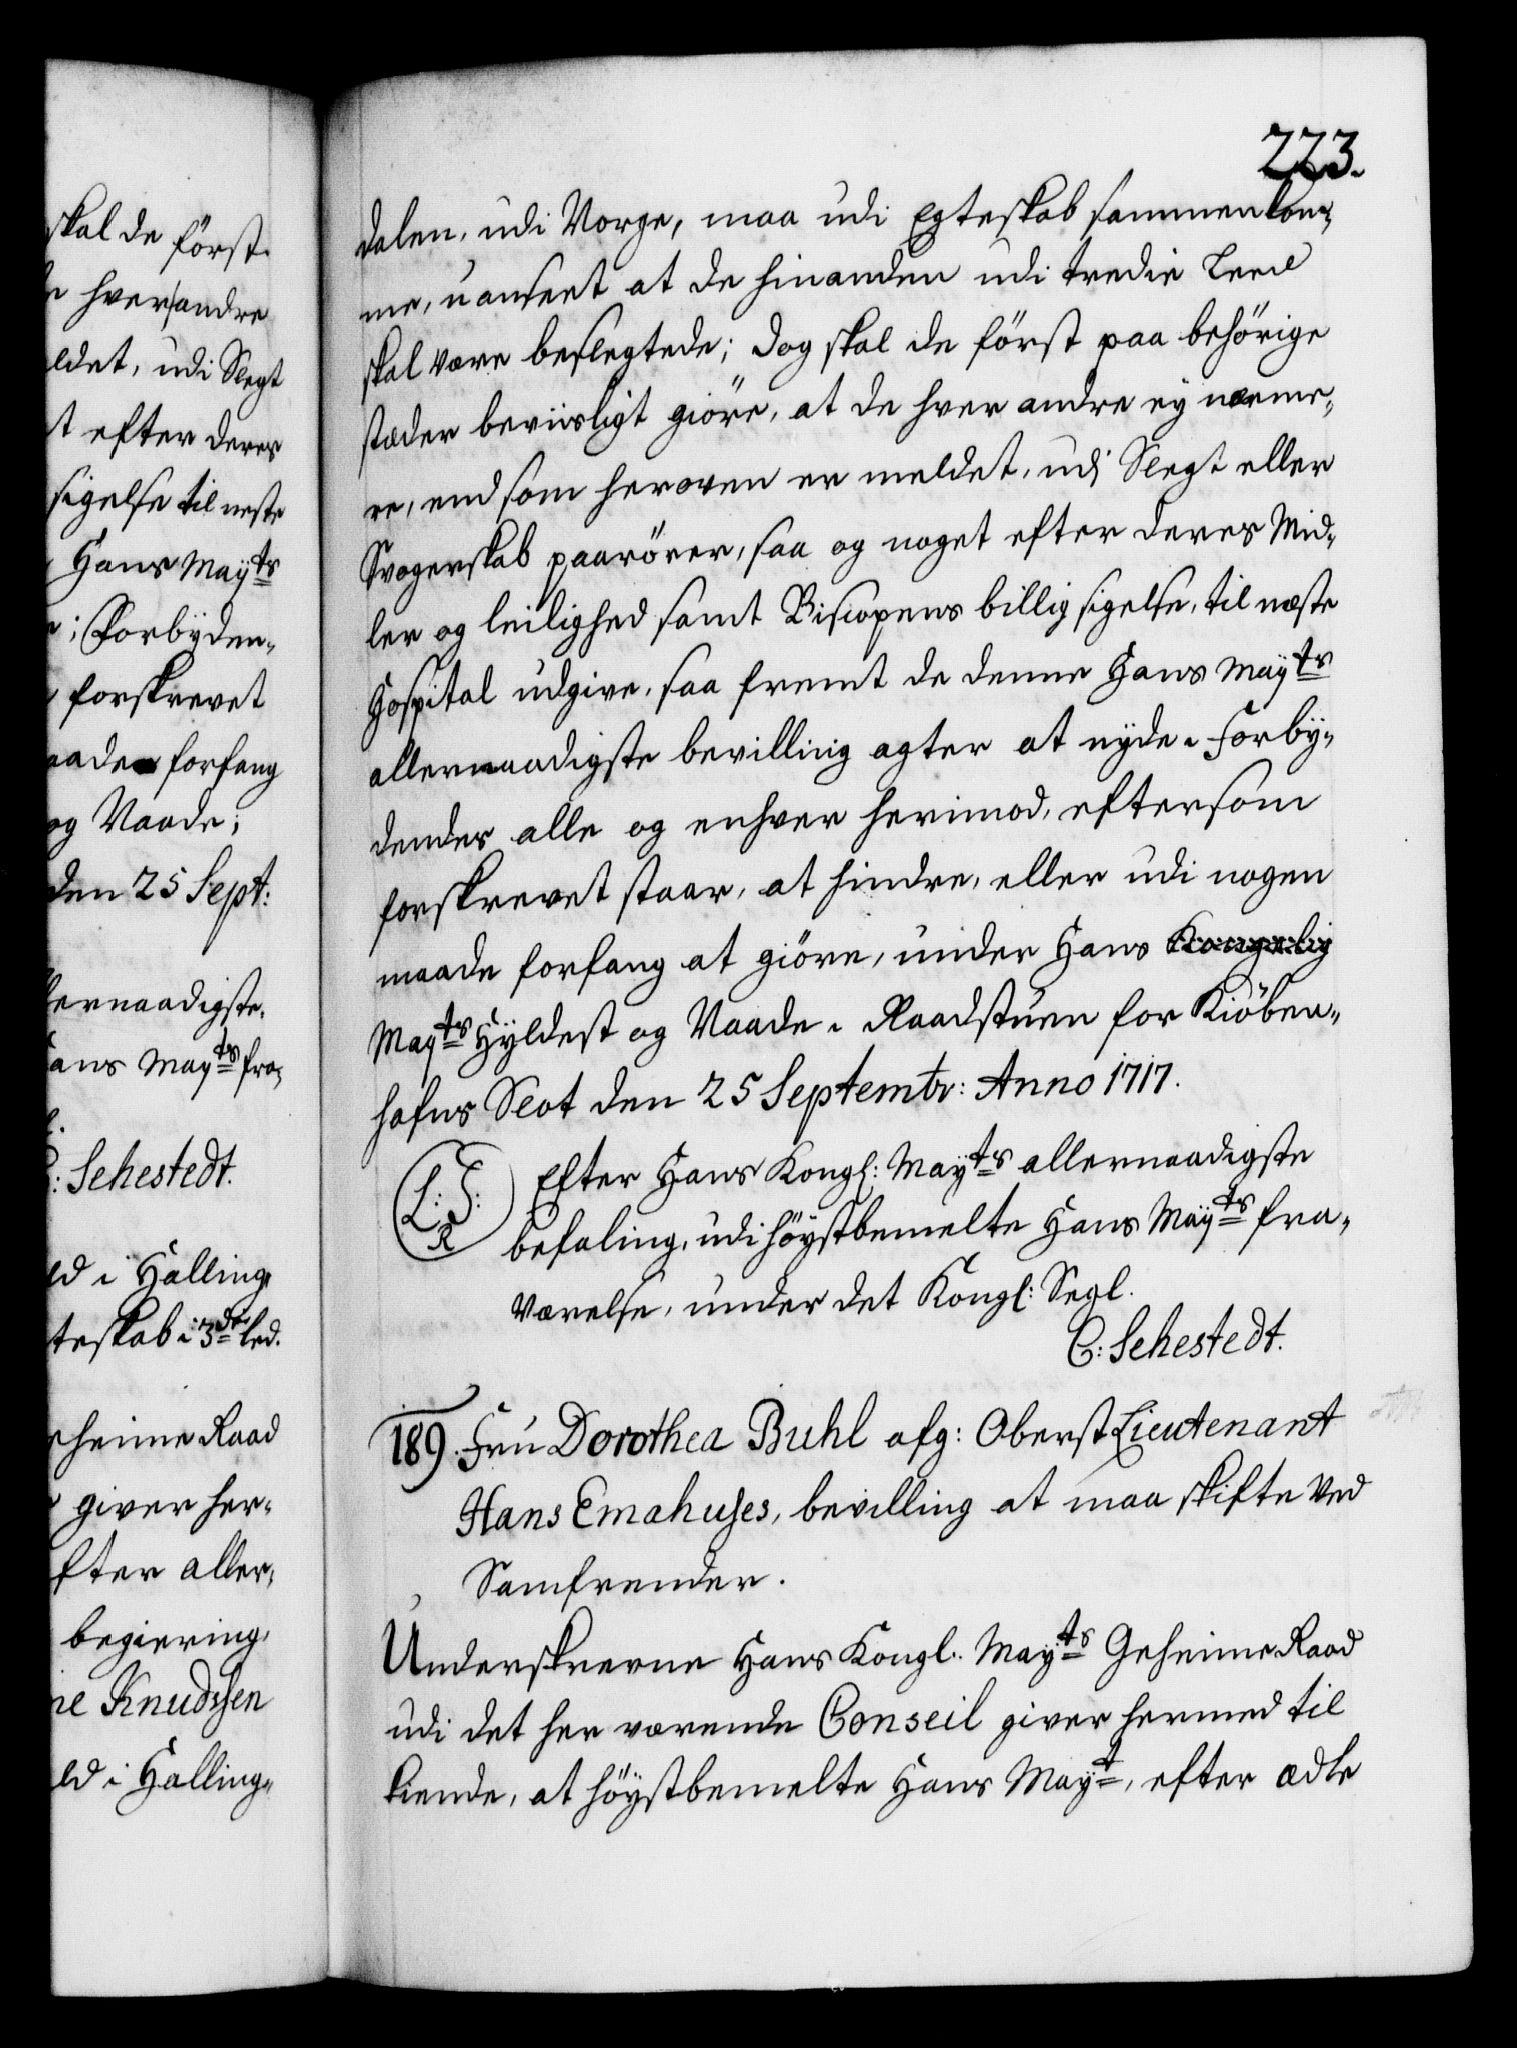 skal de först
hver andre
ldet, udi Slegt
t efter deres
sigelse til neste
Hans Mayts
; Forbyden-
forskrevet
aade forfang
og Vaade;
den 25 Sept:
lernaadigste
ans Mayts fra-
C: Sehestedt.
ld i Halling-
teskab i 3die led.
eheime Raad
giver her-
fter aller-
begiering,
ne Knudssen
ld i Halling-
223.
dalen, udi Norge, maa udi Egteskab sammenkom-
me, uanseet at de hinanden udi tredie Leed
skal være beslegtede; dog skal de först paa behörige
stæder beviisligt giöre, at de hver andre ey nærme-
re, end som heroven er meldet, udi Slegt eller
Svogerskab paarörer, saa og noget efter deres Mid-
ler og leilighed samt Biscopens billigsigelse, til næste
Hospital udgive, saa fremt de denne Hans Mayts
allernaadigste bevilling agter at nyde. Forby-
dendes alle og enhver herimod, eftersom
forskrevet staar, at hindre, eller udi nogen
maade forfang at giöre, under Hans Kongelig
Mayts Hyldest og Naade. Raadstuen for Kiöben-
hafns Slot den 25 Septembr: Anno 1717.
L: S: R
Efter Hans Kongl: Mayts allernaadigste
befaling, udi höystbemelte Hans Mayts fra-
værelse, under det Kongl: Segl.
C: Sehestedt.
189. Fru Dorothea Buhl afg: Oberst Lieutenant
Hans Emahuses, bevilling at maa skifte ved
Samfrender.
Underskrevne Hans Kongl. Mayts Geheime Raad
udi det her værende Conseil giver hermed til
kiende, at höystbemelte Hans Mayt, efter ædle